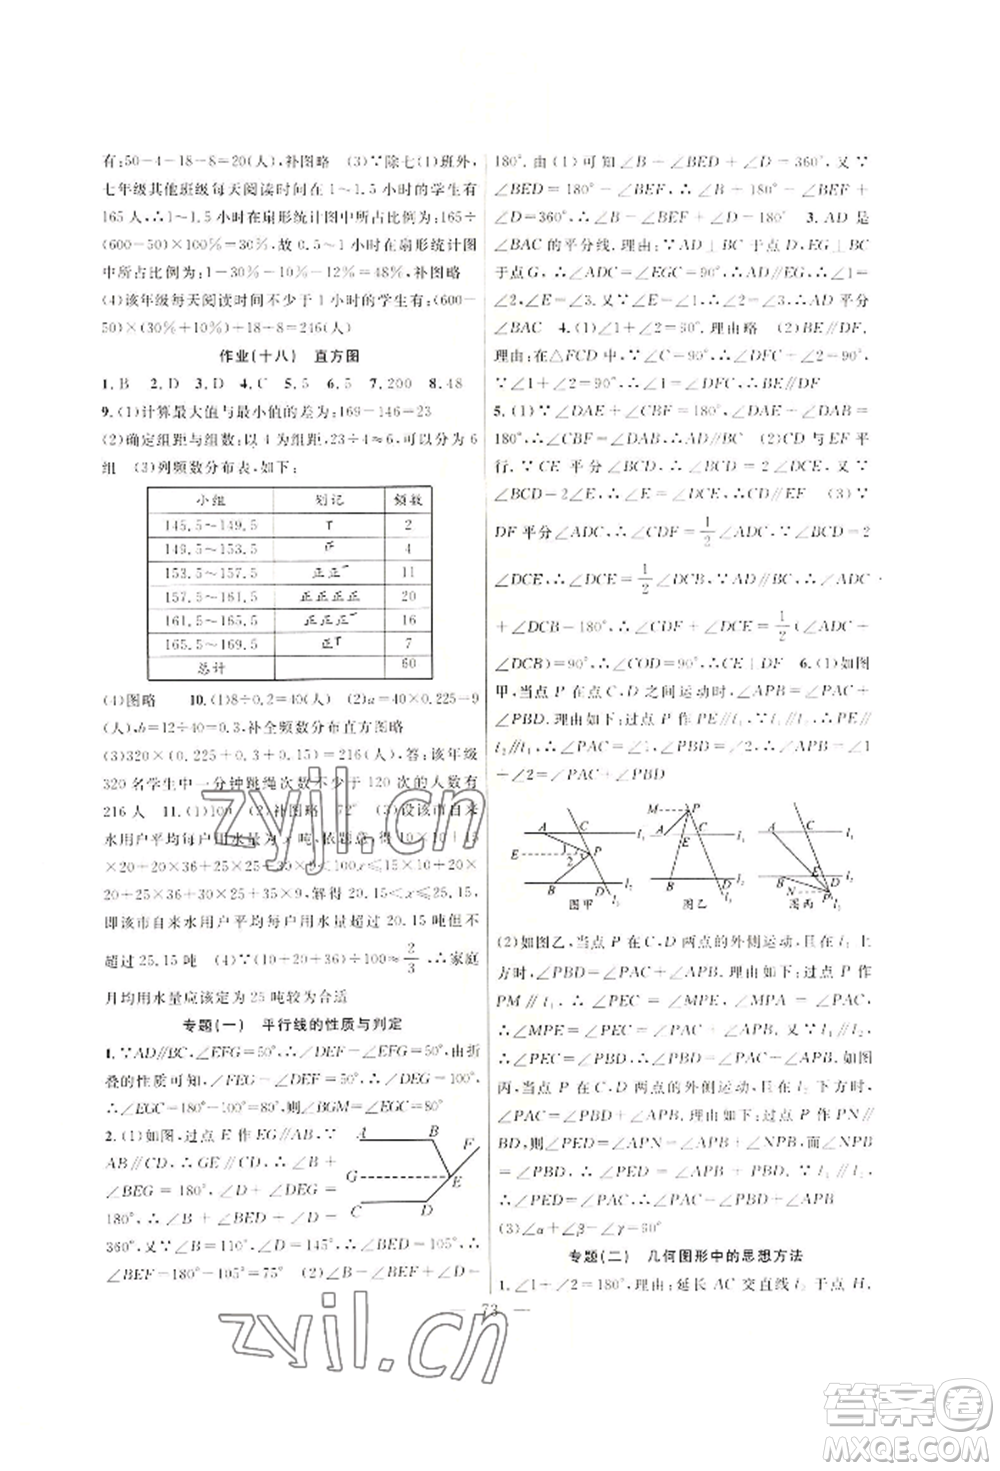 有:50-4-18-8=20(人),补图略　(3)∵除七(1)班外,
七年级其他班级每天阅读时间在1~1.5小时的学生有
165人,∴1~1.5小时在扇形统计图中所占比例为:165÷
(600-50)×100%=30%,故0.5~1小时在扇形统计图
中所占比例为:1-30%-10%-12%=48%,补图略
(4)该年级每天阅读时间不少于1小时的学生有:(600-
50)×(30%+10%)+18+8=246(人)
作业(十八)　直方图
1.B　2.D　3.D　4.C　5.5　6.5　7.200　8.48
9.(1)计算最大值与最小值的差为:169-146=23
(2)确定组距与组数:以4为组距,23÷4≈6,可以分为6
组　(3)列频数分布表,如下:
小组　划记　频数
145.5~149.5　2
149.5~153.5　正　4
153.5~157.5　正正一　11
157.5~161.5　正正正正　20
161.5~165.5　正正正一　16
165.5~169.5　7
总计　60
(4)图略　10.(1)8÷0.2=40(人)　(2)a=40×0.225=9
(人),b=12÷40=0.3,补全频数分布直方图略
(3)320×(0.225+0.3+0.15)=216(人),答:该年级
320名学生中一分钟跳绳次数不少于120次的人数有
216人　11.(1)100　(2)补图略　72°　(3)设该市自来
水用户平均每户用水量为x吨,依题意,得(10×10+15
×20+20×36+25×30+30×4)÷100≤x≤(10×10+15
×20+20×36+25×30+30×4)÷100
即该市自来水用户平均每户用水量超过20.15吨但不
超过25.15吨　(4)∵(10+20+36)÷100≈2/3,∴家庭
月均用水量应该定为25吨较为合适
专题(一)　平行线的性质与判定
1.∵AD∥BC,∠EFG=50°,∴∠DEF=∠EFG=50°,由折
叠的性质可知,∠FEG=∠DEF=50°,∴∠DEG=100°,
∴∠EGC=180°-100°=80°,则∠BGM=∠EGC=80°
2.(1)如图,过点E作EG∥AB,∵
AB∥CD,∴GE∥CD,∴∠B+
∠BEG=180°,∠D+∠DEG=
180°,∴∠B+∠BED+∠D=
360°,又∵∠B+∠D=145°,∴∠BED=215°
∠BEF=180°
A B F G E C D
180°.由(1)可知∠B+∠BED+∠D=360°,又∵
∠BED=180°-∠BEF,∴∠B+180°-∠BEF+
∠D=360°,∴∠B-∠BEF+∠D=180°　3.AD是
∠BAC的平分线.理由:∵AD⊥BC于点D,EG⊥BC
于点G,∴∠ADC=∠EGC=90°,∴AD∥EG,∴∠1=
∠2,∠E=∠3,又∵∠E=∠1,∴∠2=∠3,∴AD平分
∠BAC　4.(1)∠1+∠2=90°.理由略　(2)BE∥DF.
理由:在△FCD中,∵∠C=90°,∴∠3+∠2=90°,
∵∠1+∠2=90°,∴∠1=∠3,∴BE∥DF
5.(1)∵∠DAE+∠CBF=180°,∠DAE+∠DAB=
180°,∴∠CBF=∠DAB,∴AD∥BC　(2)CD与EF平
行.∵CE平分∠BCD,∴∠BCE=∠DCE,又∵
∠BCD=2∠E,∴∠E=∠DCE,∴CD∥EF　(3)∵
DF平分∠ADC,∴∠CDF=1/2∠ADC,∵∠BCD=2
∠DCE,∴∠DCE=1/2∠DCB,∵AD∥BC,∴∠ADC
+∠DCB=180°,∴∠CDF+∠DCE=1/2(∠ADC+
∠DCB)=90°,∴∠COD=90°,∴CE⊥DF　6.(1)如图
甲,当点P在C、D之间运动时,∠APB=∠PAC+
∠PBD.理由如下:过点P作PE∥l₁,∵l₁∥l₂,∴PE∥
l₂∥l₁,∴∠PAC=∠1,∠PBD=∠2,∴∠APB=∠1
+∠2=∠PAC+∠PBD
A C l₁ E 1 2 P B D l₂ 图甲
M P A C l₁ E B D l₂ 图乙
A C l₁ E B D l₂ N P 图丙
(2)如图乙,当点P在C、D两点的外侧运动,且在l₁上
方时,∠PBD=∠PAC+∠APB.理由如下:过点P作
PM∥l₁,∴∠MPE=∠PEC,∠MPA=∠PAC,
∵∠MPE=∠MPA+∠APB,∴∠MPE=∠PAC+∠APB,
∴∠PEC=∠PAC+∠APB,又∵l₁∥l₂,∴∠PEC=
∠PBD,∴∠PBD=∠PAC+∠APB;如图
丙,当点P在C、D两点的外侧运动,且在l₂下方时,
∠PAC=∠PBD+∠APB.理由如下:过点P作PN∥
BD,则∠PED=∠APN,∠PBD=∠BPN,
∴∠APN=∠BPN+∠APB,∴∠PED=∠PBD+∠APB,而
∠PED=∠PAC,∴∠PAC=∠PBD+∠APB
(3)∠α+∠β-∠γ=90°
专题(二)　几何图形中的思想方法
1.∠1+∠2=180°,理由:延长AC交直线l₂于点H,
— 73 —
zyjl.cn
zyjl.cn
答案圈
MXQE.COM